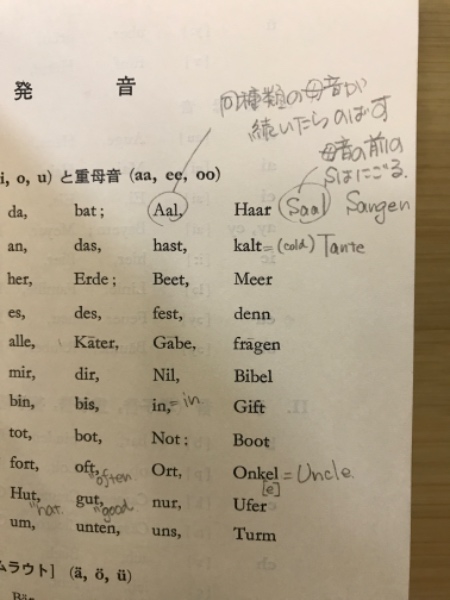 発 音
同種類の母音が
続いたらのばす
母音の前の
Sはにごる.
i, o, u) と重母音 (aa, ee, oo)
da, bat; Aal, Haar Saal Sangen
an, das, hast, kalt = (cold) Tante
her, Erde; Beet, Meer
es, des, fest, denn
alle, Kāter, Gabe, frāgen
mir, dir, Nil, Bibel
bin, bis, in, = in Gift
tot, bot, Not; Boot
fort, oft, Ort, Onkel = Uncle.
"often [e]
Hut, gut, nur, Ufer
"hat. "good
um, unten, uns, Turm
ムラウト] (ä, ö, ü)